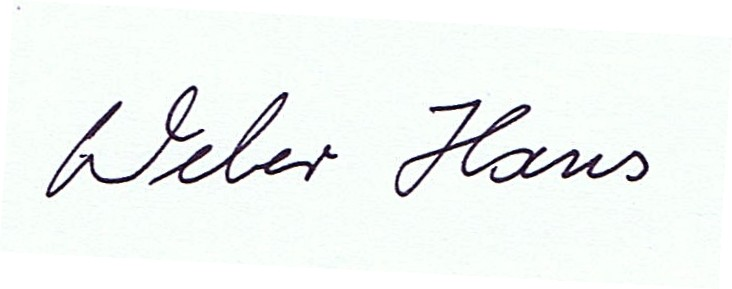 Weber Hans